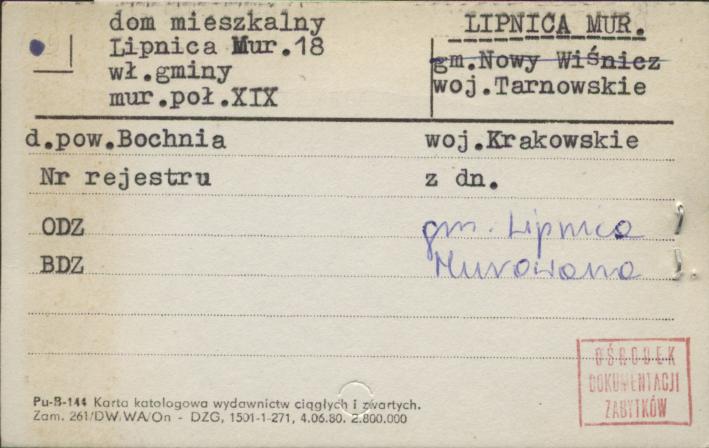 dom mieszkalny
Lipnica Mur.18
wł.gminy
mur.poł.XIX
LIPNICA MUR.
gm.Nowy Wiśnicz
woj.Tarnowskie
d.pow.Bochnia woj.Krakowskie
Nr rejestru z dn.
ODZ gm. Lipnica
BDZ Murowana
OŚRODEK
DOKUMENTACJI
ZABYTKÓW
Pu-B-144 Karta katologowa wydawnictw ciągłych i zwartych.
Zam. 261/DW/WA/On - DZG, 1501-1-271, 4.06.80. 2.800.000